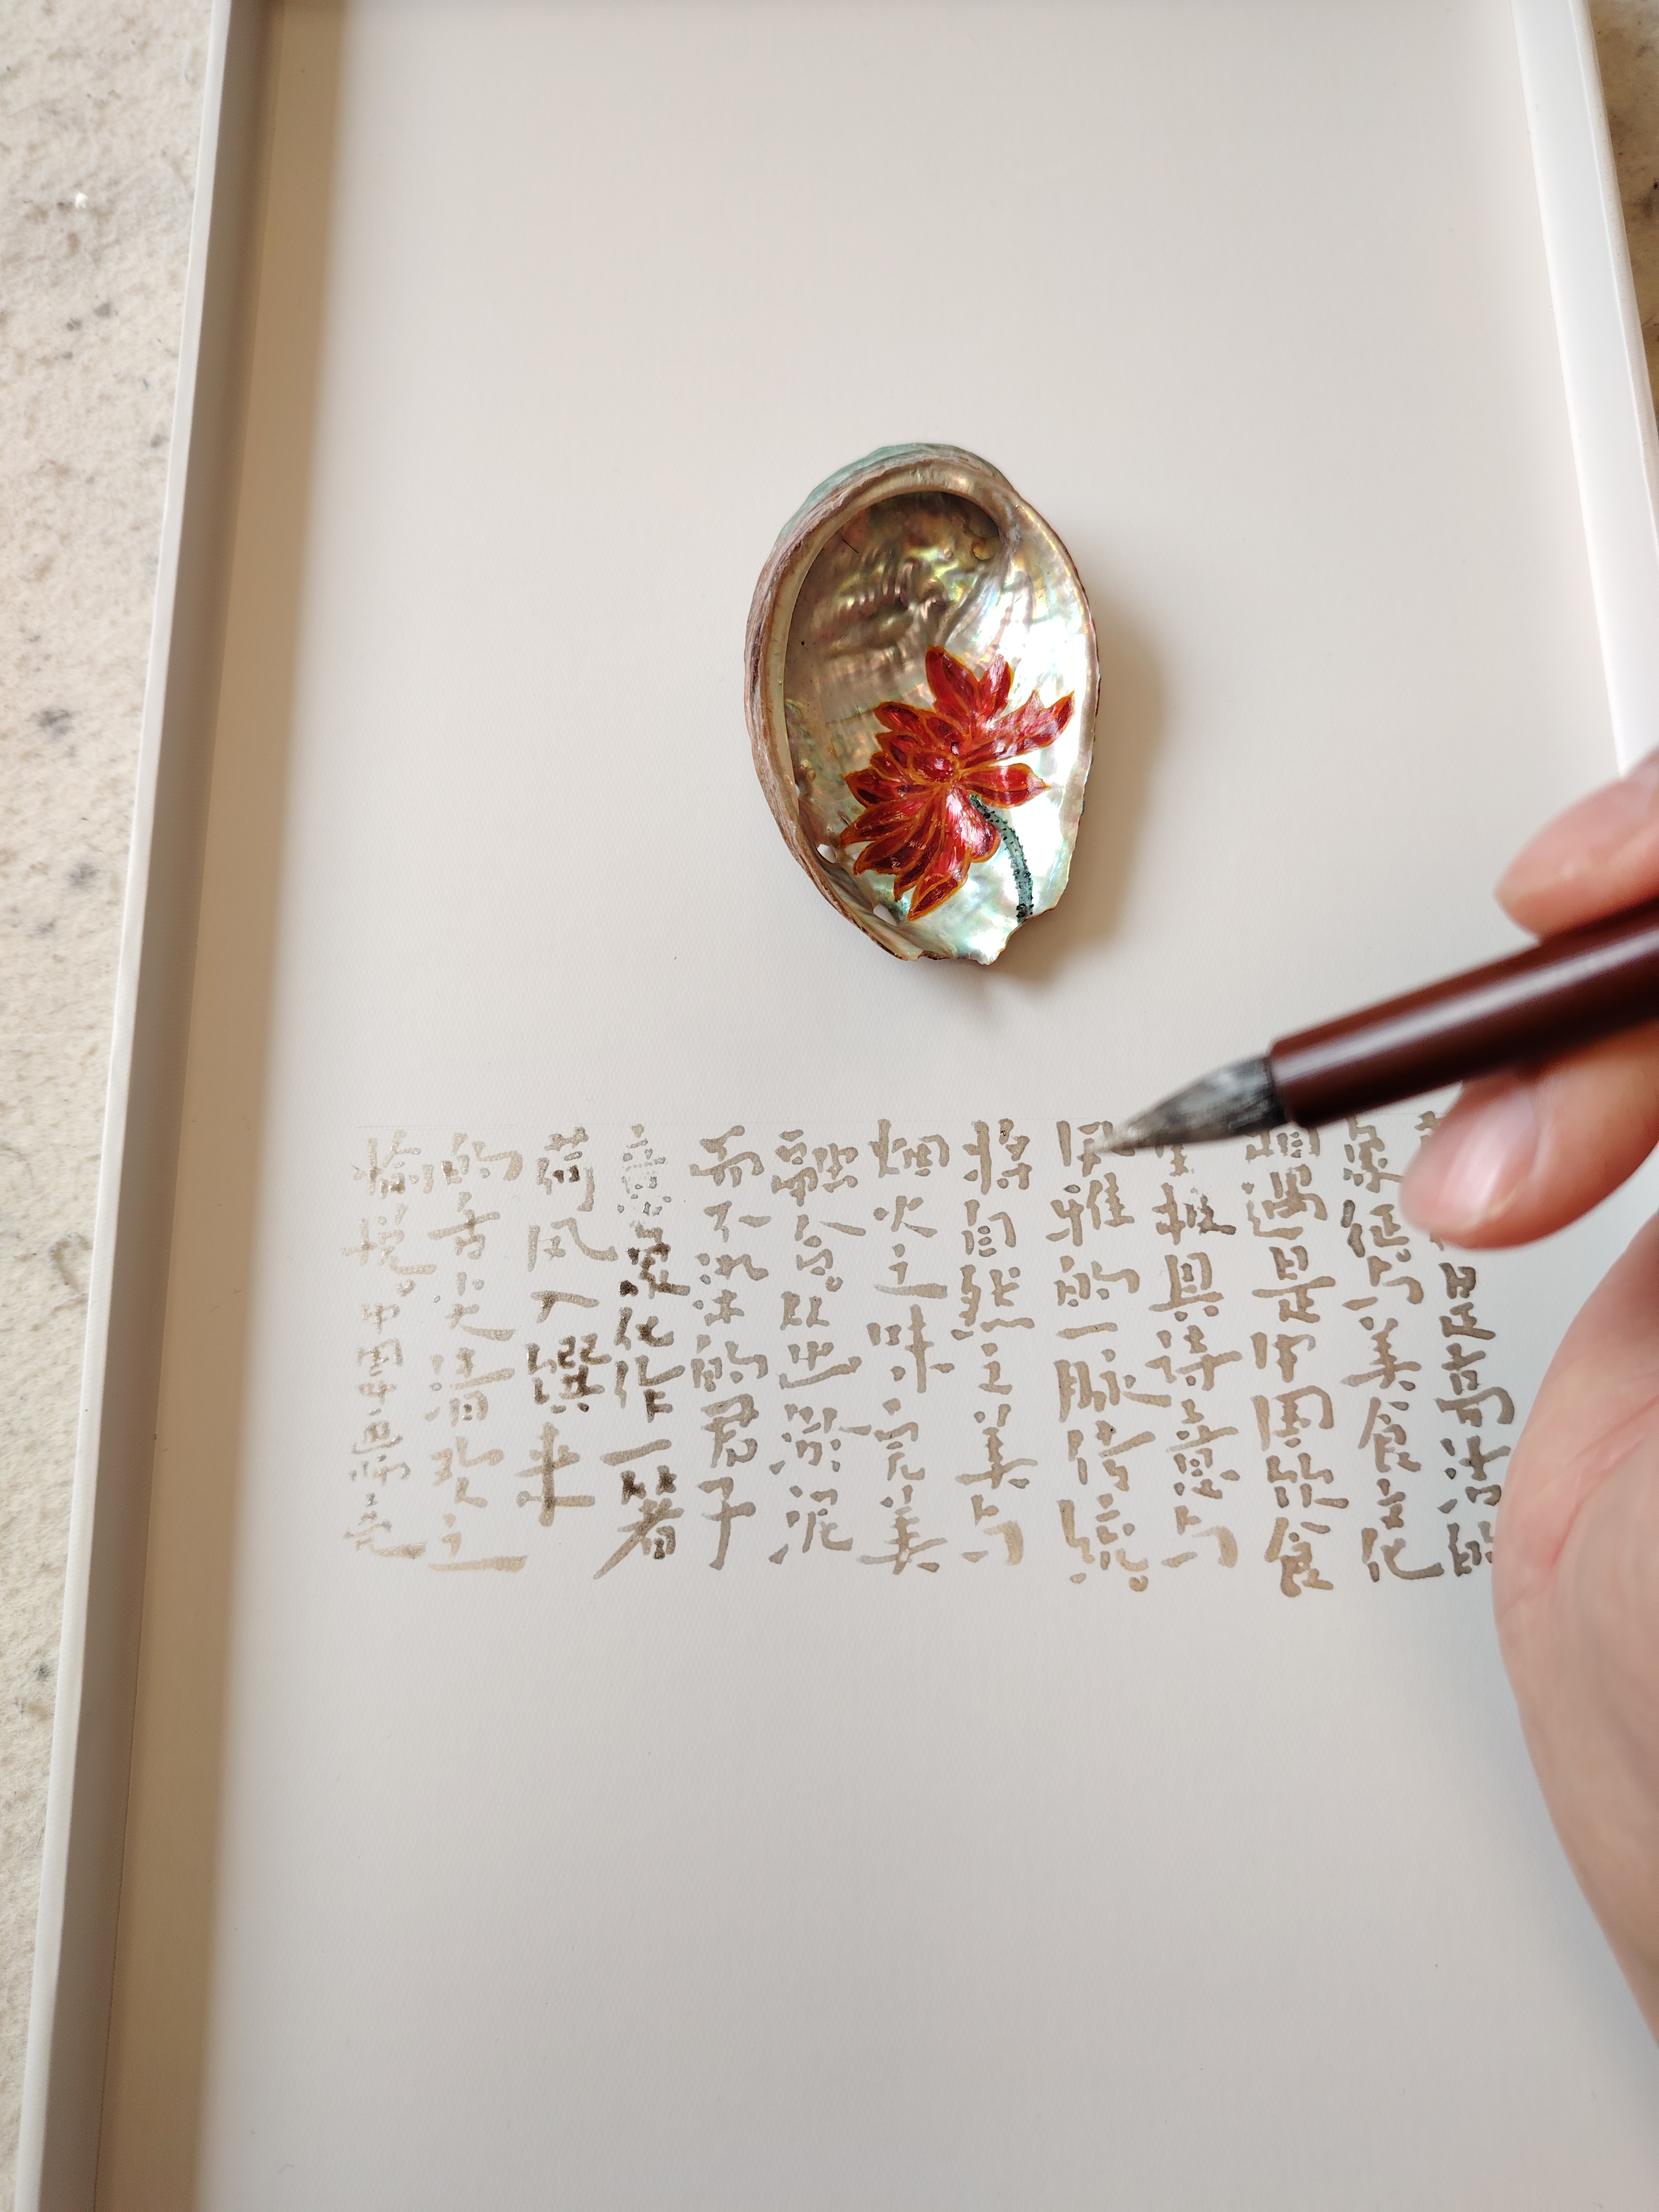 的
象征与美食文化
相遇是中国饮食
里极具诗意与
风雅的一脉传统。
将自然之美与
烟火之味完美
融合。以出淤泥
而不染的君子
意象化作一箸
荷风入馔来
的舌尖清欢之
愉悦。中国